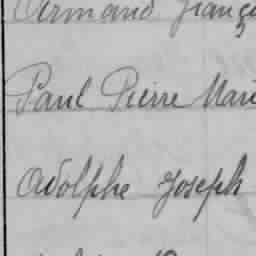 Armand Franç
Paul Pierre Mari
Adolphe Joseph